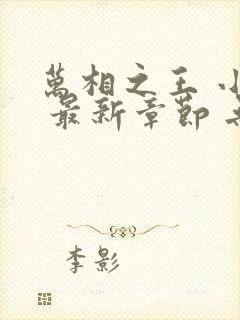 萬相之王
最新章節
李影